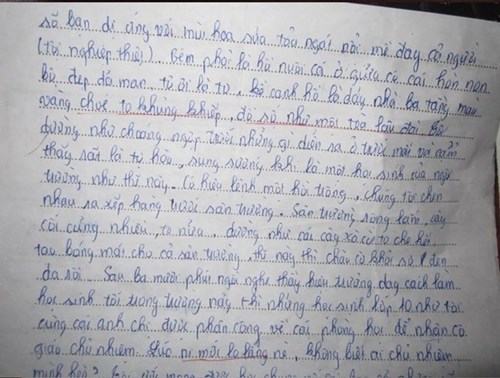 số bạn dị ứng với mùi hoa sữa toả ngát nổi mề đay cả người
(tội nghiệp thiệt). Bên phải là hồ nuôi cá ở giữa có cái hòn non
bộ đẹp dã man, to ơi là to, kế cạnh hồ là dãy nhà ba tầng màu
vàng chué to khủng khiếp, đồ sộ như một toà lâu đài. Tôi
dường như choáng ngợp trước những gì diễn ra ở trước mắt và cảm
thấy rất là tự hào, sung sướng khi là một học sinh của ngôi
trường như thế này. Có hiệu lệnh một hồi trống, chúng tôi chen
nhau ra xếp hàng trước sân trường. Sân trường rộng lắm, cây
cối cũng nhiều, to nữa, dường như cái cây xà cừ to che hết
tạo bóng mát cho cả sân trường, thế này thì chào cờ khỏi sợ đen
da rồi. Sau ba mươi phút ngồi nghe thầy hiệu trưởng dạy cách làm
học sinh tối trong trường này thì những học sinh lớp 10 như tôi
cùng các anh chị được phân công về các phòng học để nhận cô
giáo chủ nhiệm. Lúc ni mới lo lắng nè, không biết ai chủ nhiệm
mình hè?